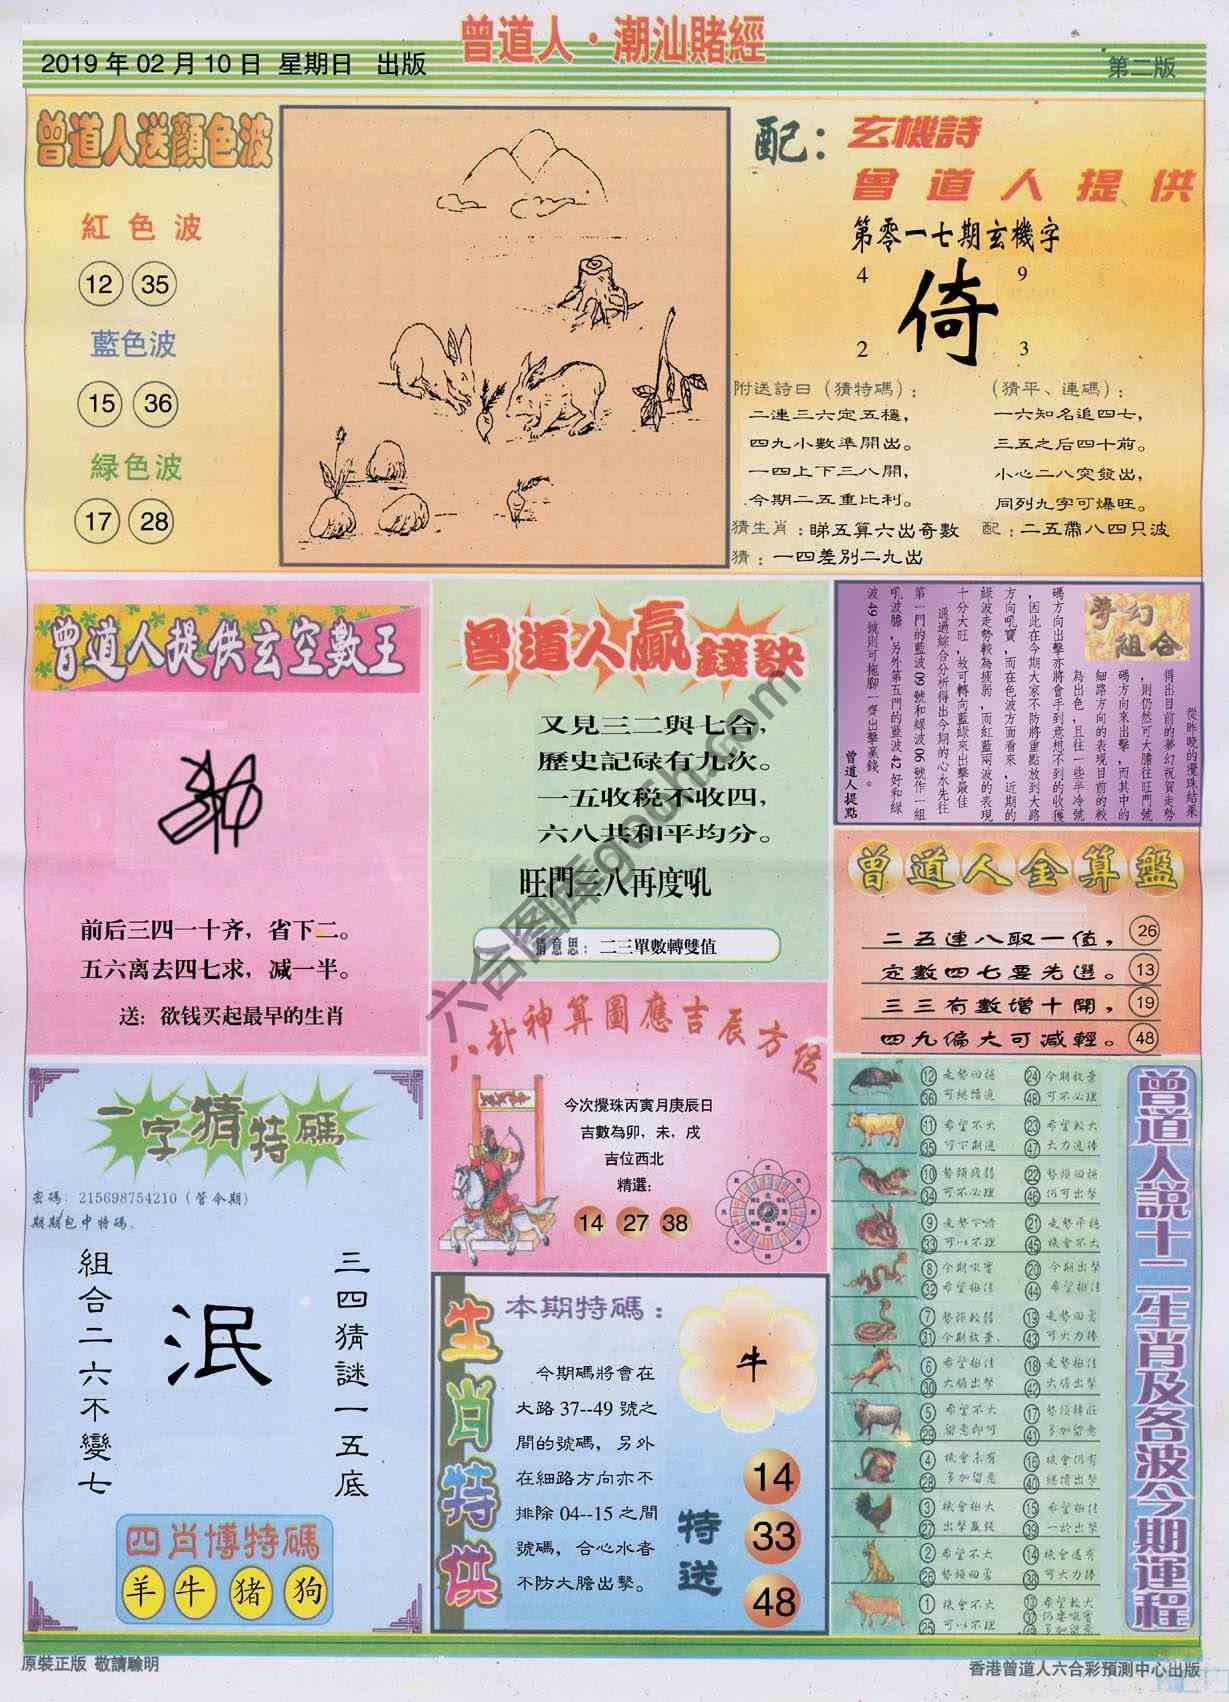 曾道人·潮汕賭經
2019年02月10日 星期日 出版
第二版
曾道人送顏色波
紅色波
12 35
藍色波
15 36
緑色波
17 28
配：玄機詩
曾道人提供
第零一七期玄機字
4 9
倚
2 3
附送詩曰（猜特碼）：
二連三六定五穩，
四九小數準開出。
一四上下三八開，
今期二五重比利。
（猜平、連碼）：
一六知名追四七，
三五之后四十前。
小心二八突發出，
同列九字可爆旺。
猜生肖：睇五算六出奇數
配：二五帶八四只波
猜：一四差別二九出
曾道人提供玄空數王
前后三四一十齐，省下二。
五六离去四七求，减一半。
送：欲钱买起最早的生肖
曾道人贏錢訣
又見三二與七合，
歷史記碌有九次。
一五收税不收四，
六八共和平均分。
旺門三八再度吼
猜意思：二三單數轉雙值
夢幻組合
從昨晚的攪珠結果
得出目前的夢幻祝賀走勢
，則仍然可大膽往旺門號
碼方向來出擊，而其中的
細路方向的表現目前的較
為出色，且往一些半冷號
碼方向出擊亦將會手到意想不到的收獲
，因此在今期大家不防將重點放到大路
方向吼寶，而在色波方面看來，近期的
綠波走勢較為疲弱，而紅藍兩波的表現
十分大旺，故可轉向藍綠來出擊最佳
。通過綜合分析得出今期的心水先往
第一門的藍波09號和綠波06號作一組
吼波膽，另外第五門的藍波42好和綠
波49號則可拖腳一齊出擊贏錢。
曾道人提點
曾道人金算盤
二五連八取一值， 26
定數四七要先選。 13
三三有數增十開， 19
四九偏大可減輕。 48
八卦神算圖應吉辰方位
：
今次攪珠丙寅月庚辰日
吉數為卯，未，戌
吉位西北
精選：
14 27 38
一字猜特碼
密碼：215698754210（管令期）
期期包中特碼．
三四猜謎一五底
泯
組合二六不變七
四肖博特碼
羊 牛 猪 狗
生肖特供
本期特碼：
今期碼將會在
大路37--49號之
間的號碼，另外
在細路方向亦不
排除04--15之間
號碼，合心水者
不防大膽出擊。
牛
特送
14
33
48
曾道人說十二生肖及各波今期運程
12 走勢回穩 24 今期放棄
36 可繼續追 48 可不必理
11 希望不大 23 希望較大
35 可下期追 47 大力追捧
10 勢頭疲弱 22 勢頭回穩
34 可不必理 46 仍可出擊
9 走勢下滑 21 走勢平穩
33 可以不理 45 機會不大
8 今期吸寶 20 今期出擊
32 希望極佳 44 希望極佳
7 勢頭較弱 19 走勢回勇
31 今期放棄． 43 可大力捧
6 希望極佳 18 走勢極佳
30 大膽出擊 42 大膽出擊
5 希望不大 17 勢頭轉旺
29 留意即可 41 多加留意
4 機會未有 16 機會仍有
多加留意 40 繼續出擊
3 機會極大 15 希望極佳
27 出擊贏錢 39 一於出擊
2 希望不大 14 機會還有
26 勢頭回勇 38 可大力捧
1 機會不大 13 希望較大
25 可以不理 37 仍要吸寶
49 多加留意
原裝正版 敬請驗明
香港曾道人六合彩預測中心出版
六合图库go6h.com